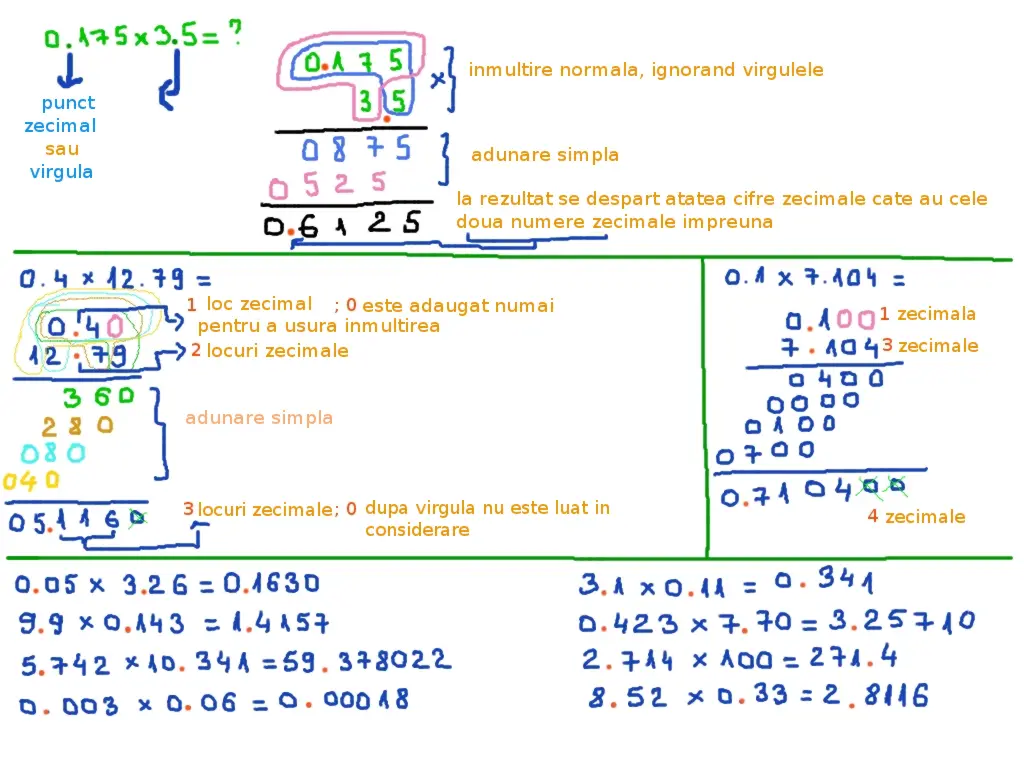 0.175 x 3.5 = ?
punct
zecimal
sau
virgula
0.175
x
3.5
inmultire normala, ignorand virgulele
0875
adunare simpla
0525
la rezultat se despart atatea cifre zecimale cate au cele
doua numere zecimale impreuna
0.6125
0.4 x 12.79 =
1 loc zecimal ; 0 este adaugat numai
pentru a usura inmultirea
0.40
12.79
2 locuri zecimale
360
280
080
040
adunare simpla
05.1160
3 locuri zecimale; 0 dupa virgula nu este luat in
considerare
0.1 x 7.104 =
0.100 1 zecimala
7.104 3 zecimale
0400
0000
0100
0700
0.710400
4 zecimale
0.05 x 3.26 = 0.1630
9.9 x 0.143 = 1.4157
5.742 x 10.341 = 59.378022
0.003 x 0.06 = 0.00018
3.1 x 0.11 = 0.341
0.423 x 7.70 = 3.25710
2.714 x 100 = 271.4
8.52 x 0.33 = 2.8116